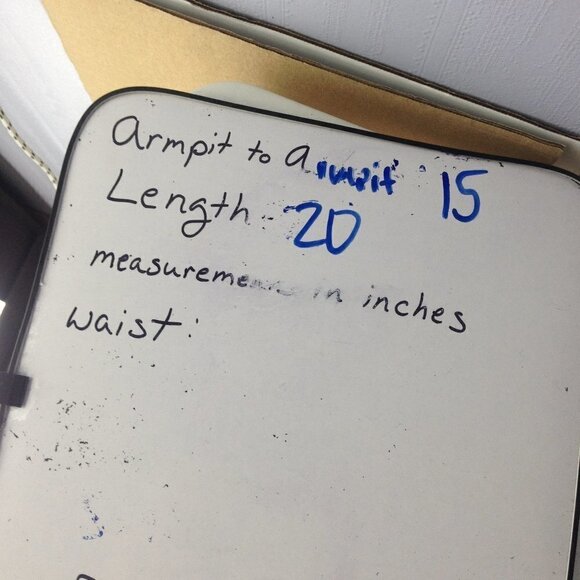 Armpit to Armpit: 15
Length 20
measurements in inches
Waist: